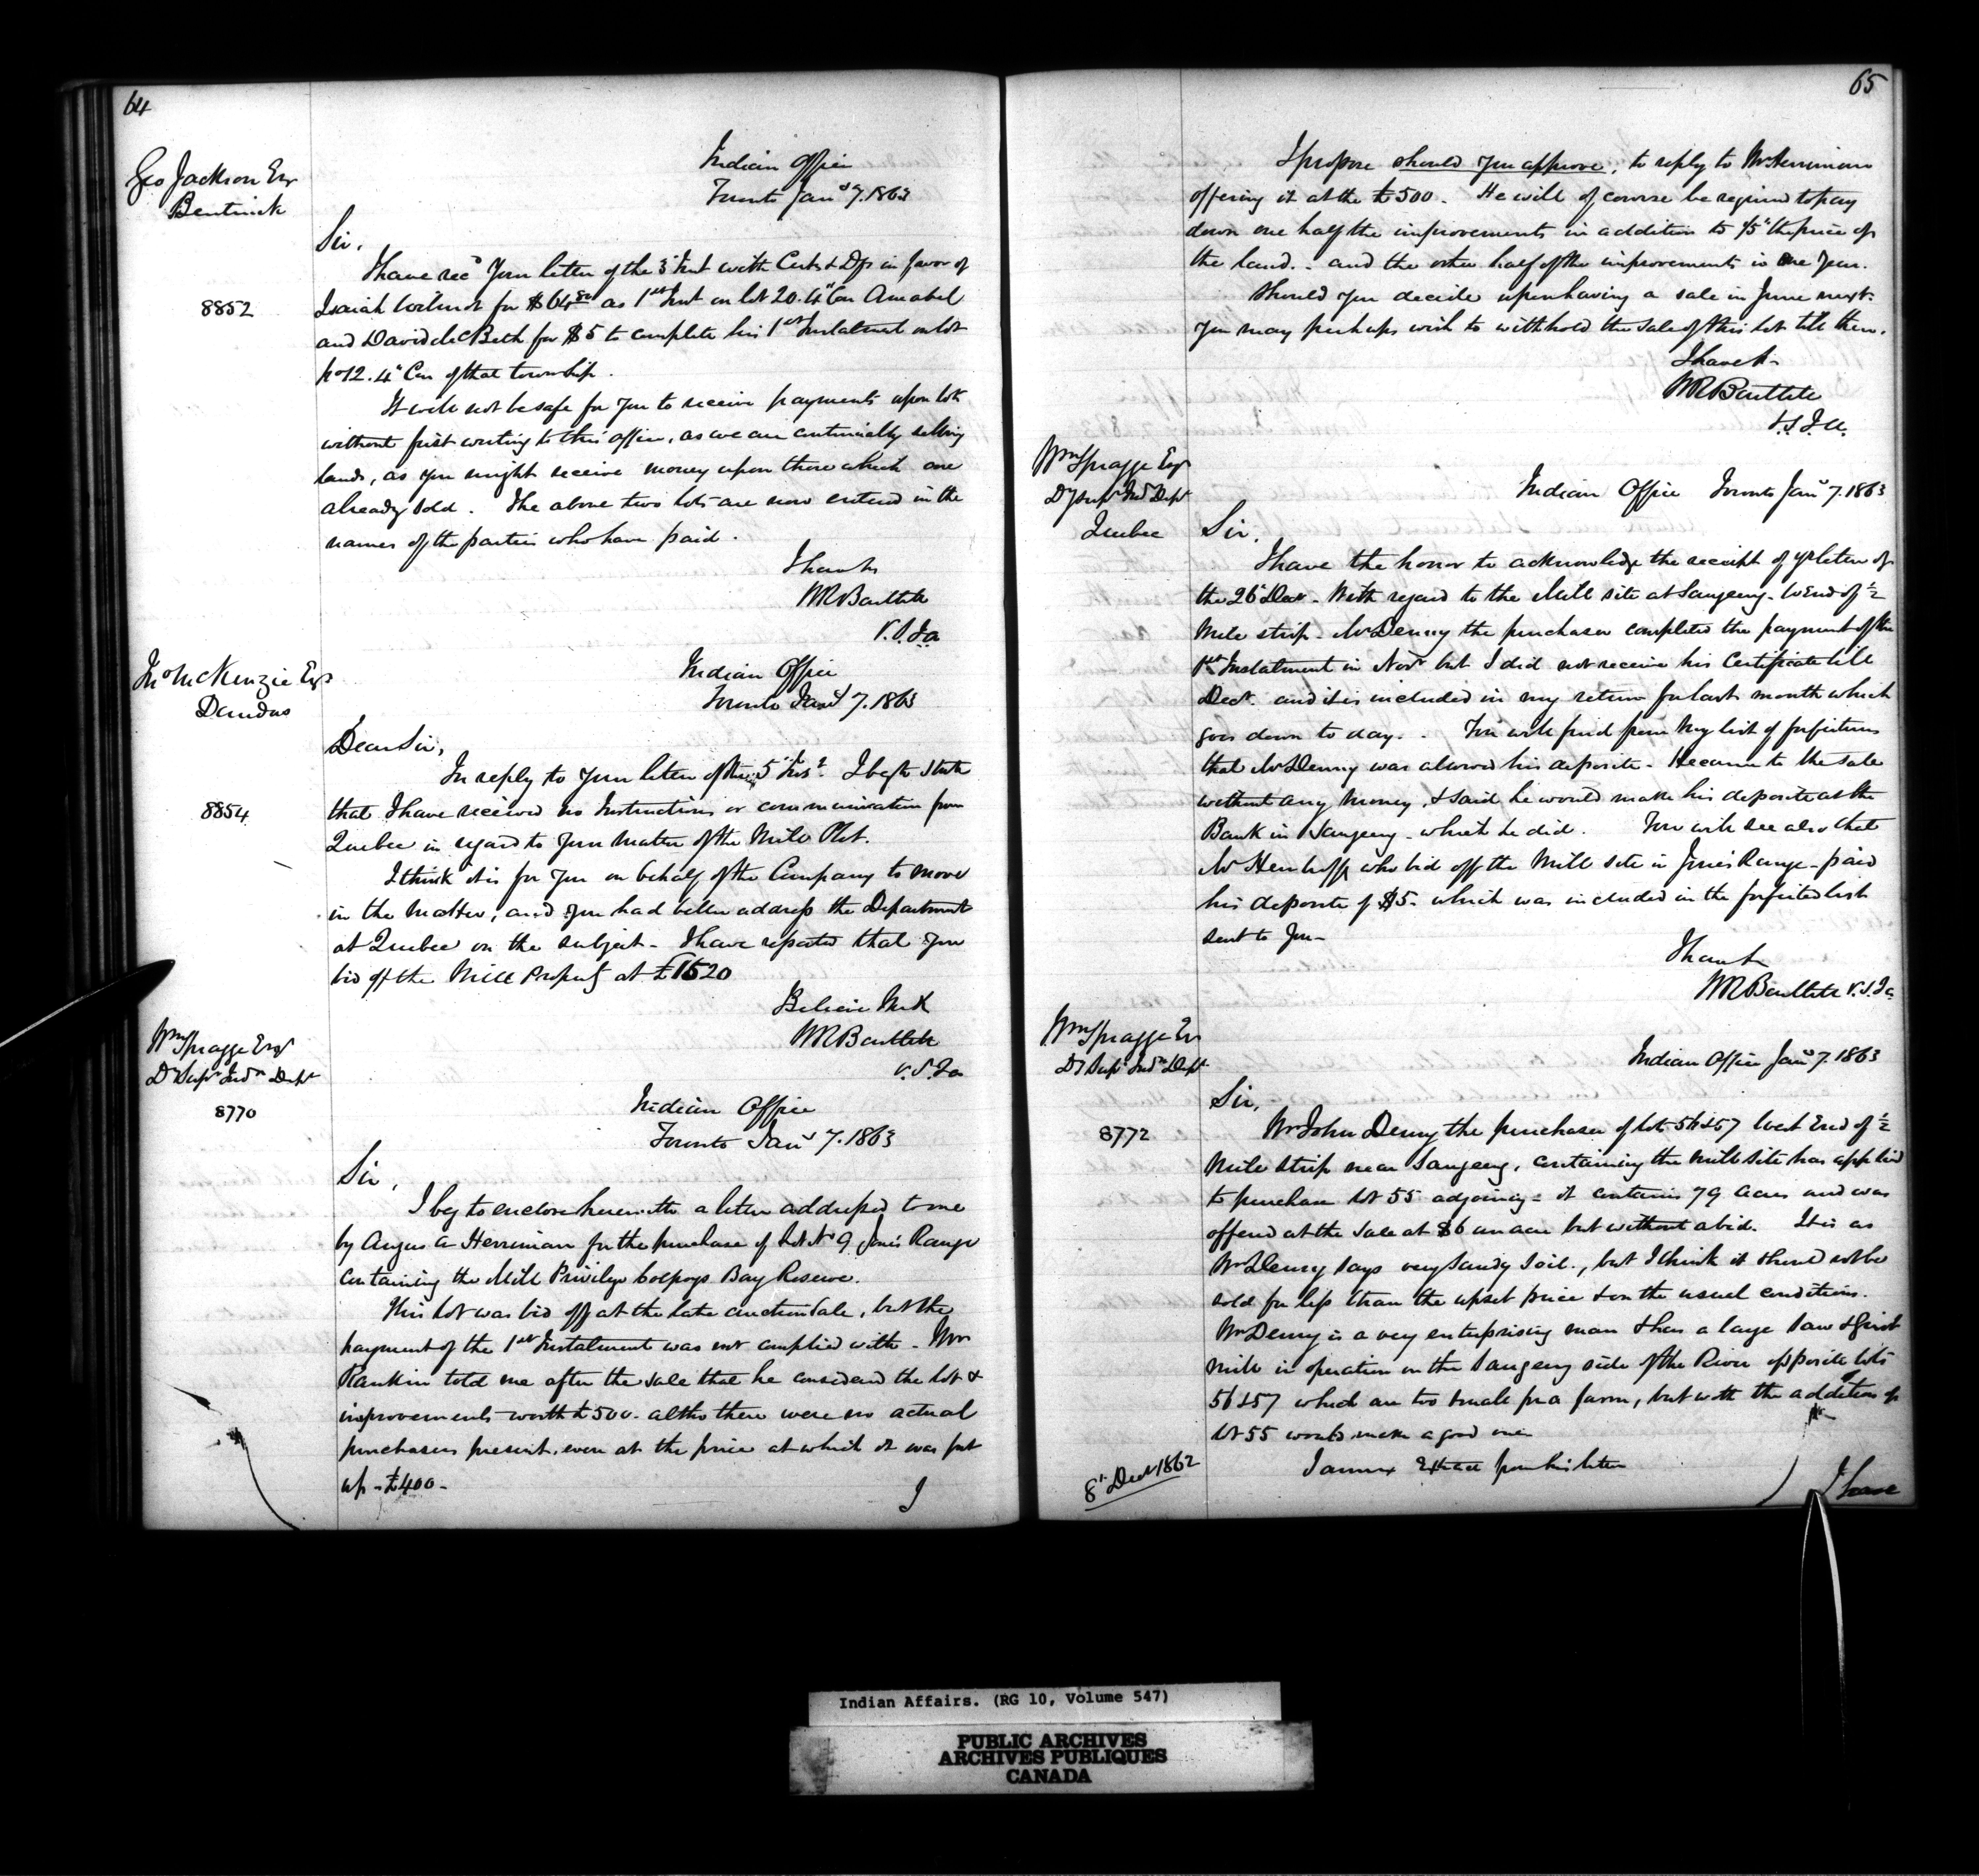 64
Geo Jackson Esq
Bentinck
Indian Office
Toronto Jany 7. 1863
Sir,
I have recd your letter of the 3d Inst with Certs & Dps in favor of
8852
Isaiah Wilmot for $64.80 as 1st Inst on lot 20. 4th Con Amabel
and David McBeth for $5 to complete his 1st Instalment on lot
No 12. 4th Con of that township.
It will not be safe for you to receive payments upon lots
without first writing to this office, as we are continually selling
lands, as you might receive money upon those which are
already sold. The above two lots are now entered in the
names of the parties who have paid.
I have &c
WR Bartlett
V.S.Ia
Jno McKenzie Esq
Dundas
Indian Office
Toronto Jany 7. 1863
Dear Sir,
In reply to your letter of the 5th Inst. I beg to state
8854
that I have received no Instructions or communication from
Quebec in regard to your matter of the Mill Plot.
I think it is for you on behalf of the Company to move
in the matter, and you had better address the Department
at Quebec on the subject - I have reported that you
bid off the Mill Property at £1520
Believe Me &
WR Bartlett
V.S.Ia
Wm Spragge Esqr
Dy Supt Indn Dept
8770
Indian Office
Toronto Jany 7. 1863
Sir,
I beg to enclose herewith a letter addressed to me
by Angus A Herriman for the purchase of Lot No 9 Jones Range
containing the Mill Privilege Colpoys Bay Reserve.
This lot was bid off at the late auction Sale, but the
payment of the 1st Instalment was not complied with - Mr
Rankin told me after the sale that he considered the lot &
improvements worth £500- altho there were no actual
purchasers present, even at the price at which it was put
up - £400-
I
65
I propose should you approve, to reply to Mr Herriman
offering it at the £500. He will of course be required to pay
down one half the improvements in addition to 1/5th the price of
the land.- and the other half of the improvements in One Year.
Should you decide upon having a sale in June next.
you may perhaps wish to withhold the sale of this lot till then.
I have &c
WR Bartlett
V.S.I.A.
Wm Spragge Esqr
Dy Supt Ind Dept
Quebec
Indian Office Toronto Jany 7. 1863
Sir,
I have the honor to acknowledge the receipt of yr letter of
the 26th Decr - With regard to the Mill site at Saugeeng - W End of ½
Mile strip - Mr Denny the purchaser completed the payment of the
1st Instalment in Novr but I did not receive his Certificate till
Decr. and it is included in my return for last month which
goes down to day. - You will find from my list of forfeitures
that Mr Denny was allowed his deposite - He came to the sale
without any money, & said he would make his deposite at the
Bank in Saugeeng - which he did. You will see also that
Mr who bid off the Mill site in Jones Range - paid
his deposite of $5- which was included in the forfeited list
sent to you -
I have &c
WR Bartlett V.S.Ia
Wm Spragge Esr
Dy Supt Indn Dept
Indian Office Jany 7. 1863
Sir,
8772
Mr John Denny the purchaser of lots 56 & 57 West End of ½
Mile Strip near Saugeeng, containing the mill site has applied
to purchase lot 55 adjoining - it contains 79 acres and was
offered at the Sale at $6 an acre but without a bid. It is as
Mr Denny says very sandy soil., but I think it should not be
sold for less than the upset price & on the usual conditions.
Mr Denny is a very enterprising man & has a large saw & Grist
mill in operation on the Saugeeng side of the River opposite lots
56 & 57 which are too small for a farm, but with the addition of
lot 55 would make a good one
8th Decr 1862
I annex Extract from his letter
I have
Indian Affairs. (RG 10, Volume 547)
PUBLIC ARCHIVES
ARCHIVES PUBLIQUES
CANADA